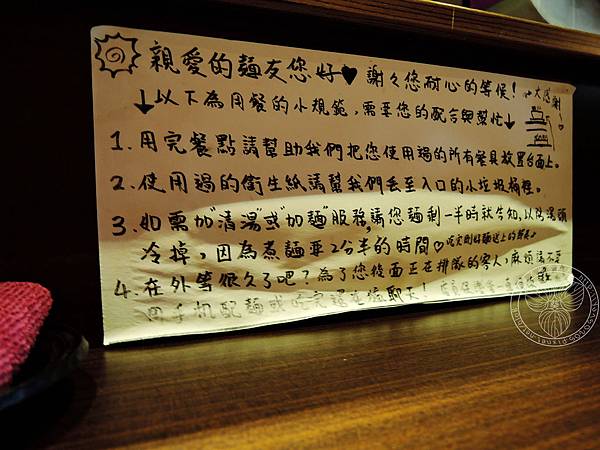 親愛的麵友您好♥ 謝々您耐心的等候! 大感謝
↓以下為用餐的小規範,需要您的配合與幫忙↓
1. 用完餐點請幫助我們把您使用過的所有餐具放置台面上。
2. 使用過的衛生紙請幫我們丟至入口的小垃圾桶裡。
3. 如需加"清湯"或"加麵"服務,請您麵剩一半時就告知,以防湯頭
冷掉,因為煮麵要2分半的時間♡吃完剛好麵送上的節奏♪
4. 在外等很久了吧?為了您後面正在排隊的客人,麻煩請不要
用手机配麵或吃完還在偷聊天!